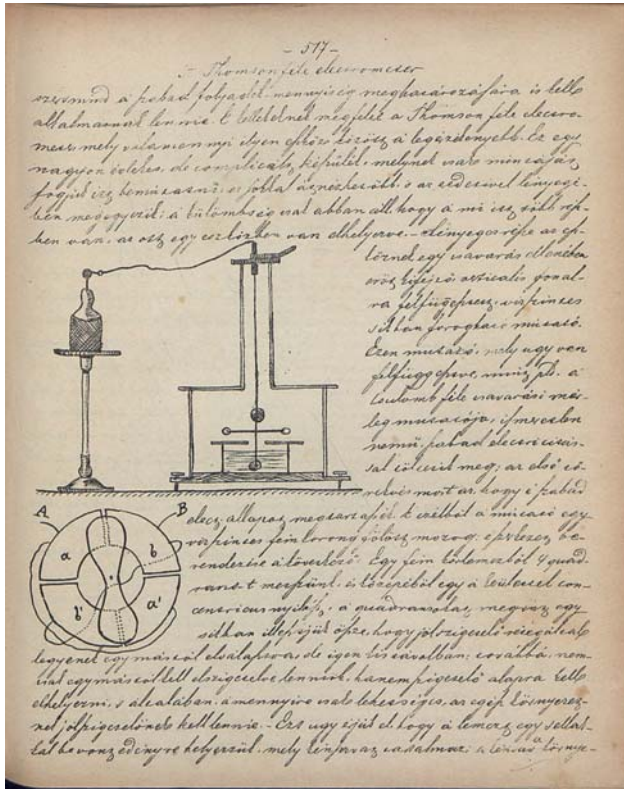 - 517 -
Thomsonféle electrometer
egyszersmind a szabad folyadék mennyiség meghatározására is kell
alkalmasnak lennie. E kelléknek megfelel a Thomson féle electro-
meter, mely valamennyi ilyen eszköz között a legérzékenyebb. Ez egy
nagyon érdekes, de complicált készülék, melynek csak
fogjuk így bemutatni,
ben megegyezik; a külömbség csak abban áll, hogy a mi itt több rész-
ben van, az ott egy eszközben van elhelyezve. - Lényeges része az esz-
köznek egy csavarás ellenében
ra felfüggesztett, vízszintes
síkban forogható mutató.
Ezen mutató, mely úgy van
felfüggesztve, mint pl. a
Coulomb féle csavarási mér-
leg mutatója, ismeretlen
nemű szabad electricitás-
sal töltetik meg; az első
most az, hogy e szabad
elect. állapot megtartassék. E czélból a mutató egy
vízszintes fein korong fölött mozog,
rendezése a következő: Egy fein korlemezből 4 quad-
ranst metszünk, és közepéből egy a körülettel con-
centricus nyílást, a quadransokat megint egy
síkban illesztjük össze, hogy jól szigetelő
legyenek egymástól elválasztva, de igen kis távolban; továbbá, nem-
csak egymástól kell elszigetelve lenniök, hanem szigetelő alapra kell
elhelyezni, s általában, a mennyire csak lehetséges, az egész környezet-
nek jól szigetelőnek kell lennie. - Ezt úgy érjük el, hogy a lemezt egy
bevont edényre helyezzük, mely kénsavat tartalmaz; a kénsav a környe-
A
B
a
b
b'
a'